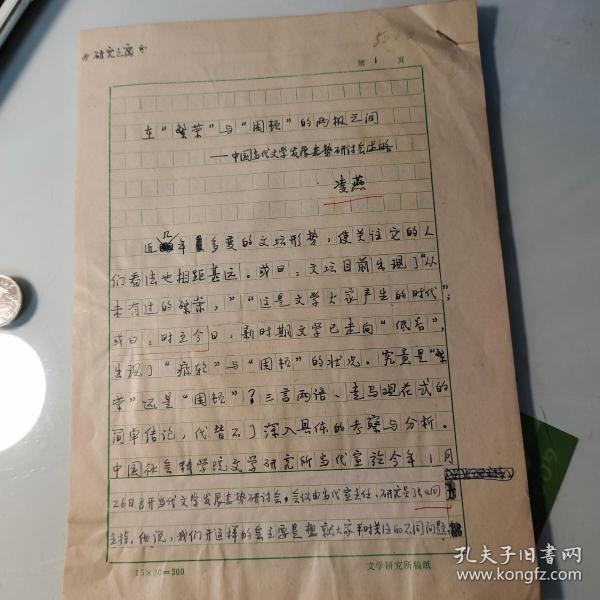 研究之窗
5000
第 1 页
在“繁荣”与“困顿”的两极之间
——中国当代文学发展态势研讨会述略
凌燕
近几年多变的文坛形势，使关注它的人
们看法也相距甚远。或曰：文坛目前出现了“从
未有过的繁荣，”“这是文学大家产生的时代”；
或曰：时至今日，新时期文学已走向“低谷”，
出现了“疲软”与“困顿”的状况。究竟是“繁
荣”还是“困顿”？三言两语、走马观花式的
简单结论，代替不了深入具体的考察与分析。
中国社会科学院文学研究所当代室于今年1月
26日召开当代文学发展态势研讨会。会议由当代室主任、研究员
主持。他说，我们开这样的会主要是想就大家平时关注的不同问题
15×20=300
文学研究所稿纸
孔夫子旧书网
www.kongfz.com